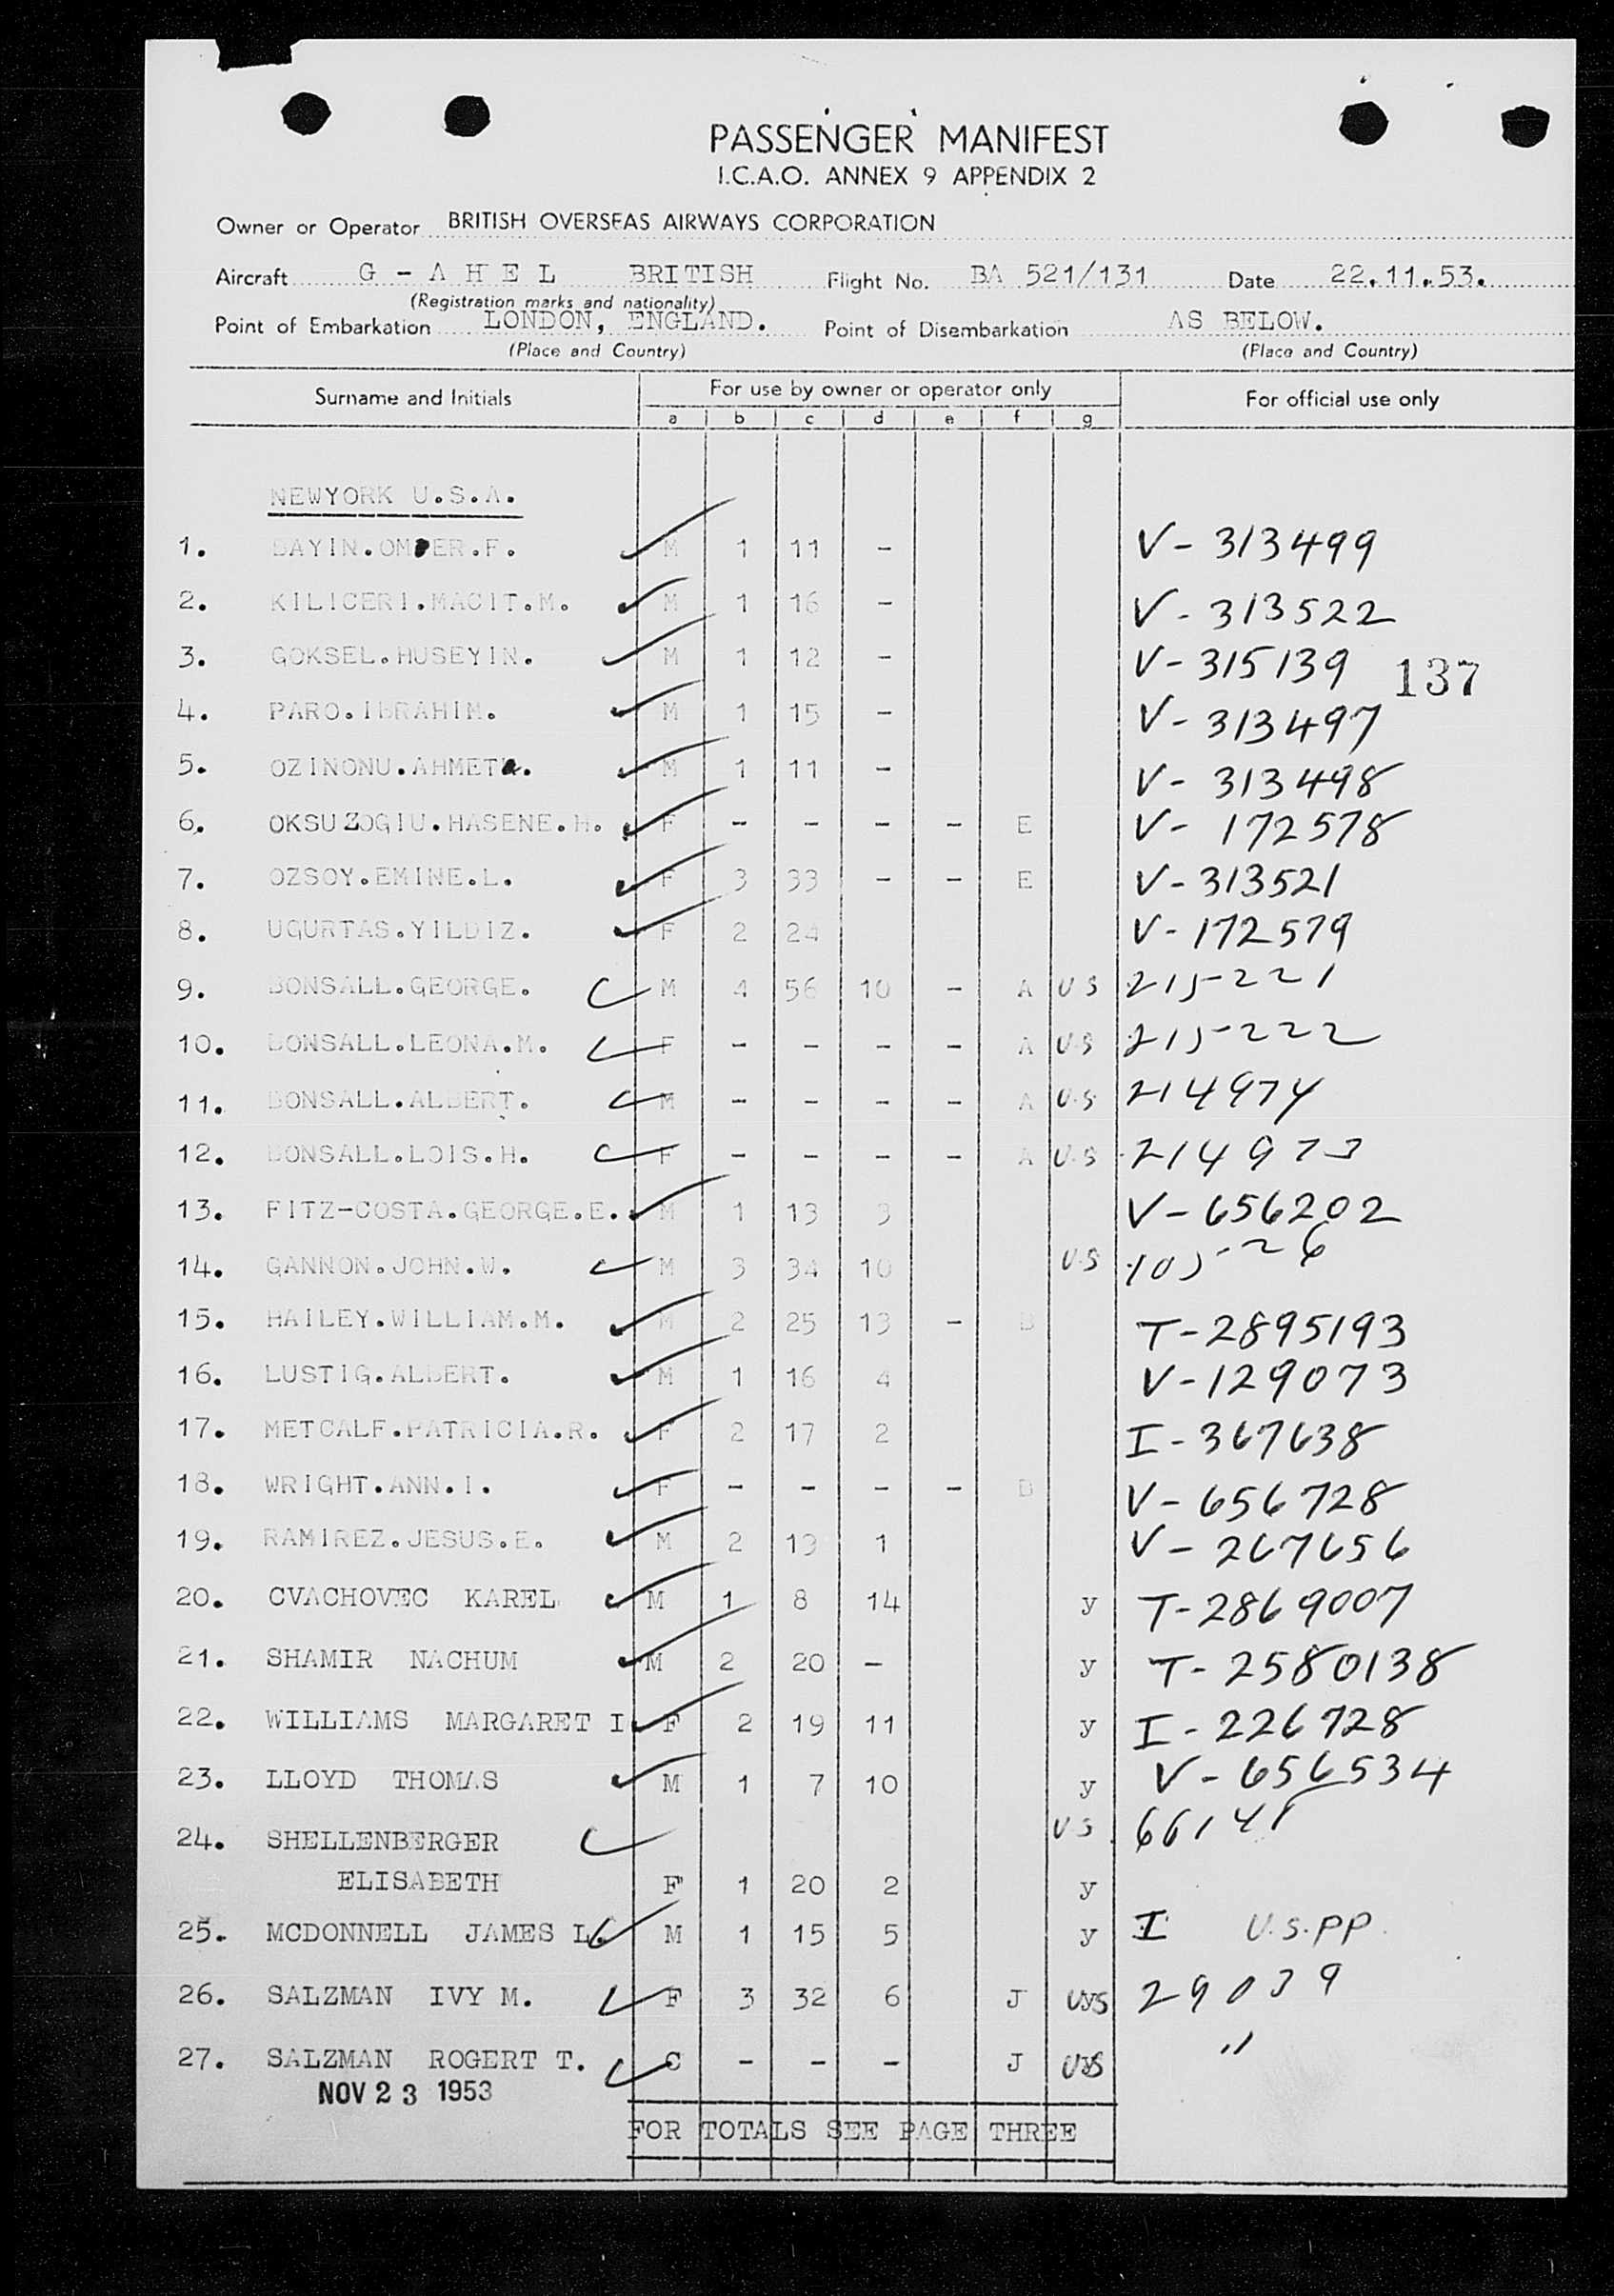 PASSENGER MANIFEST
I.C.A.O. ANNEX 9 APPENDIX 2
Owner or Operator BRITISH OVERSEAS AIRWAYS CORPORATION
Aircraft G - A H E L BRITISH Flight No. BA 521/131 Date 22.11.53.
(Registration marks and nationality)
Point of Embarkation LONDON, ENGLAND. Point of Disembarkation AS BELOW.
(Place and Country) (Place and Country)
Surname and Initials For use by owner or operator only For official use only
a b c d e f g
NEWYORK U.S.A.
1. DAYIN.OMER.F. M 1 11 - V-313499
2. KILICERI.MACIT.M. M 1 16 - V-313522
3. GOKSEL.HUSEYIN. M 1 12 - V-315139 137
4. PARO.IBRAHIM. M 1 15 - V-313497
5. OZINONU.AHMET. M 1 11 - V-313498
6. OKSUZOGIU.HASENE.H. F - - - - E V-172578
7. OZSOY.EMINE.L. F 3 33 - - E V-313521
8. UGURTAS.YILDIZ. F 2 24 V-172579
9. BONSALL.GEORGE. M 4 56 10 - A US 215221
10. BONSALL.LEONA.M. F - - - - A US 215222
11. BONSALL.ALBERT. M - - - - A U.S. 214974
12. BONSALL.LOIS.H. F - - - - A U.S 214973
13. FITZ-COSTA.GEORGE.E. M 1 13 3 V-656202
14. GANNON.JOHN.W. M 3 34 10 U.S 10526
15. HAILEY.WILLIAM.M. M 2 25 13 - B T-2895193
16. LUSTIG.ALBERT. M 1 16 4 V-129073
17. METCALF.PATRICIA.R. F 2 17 2 I-367638
18. WRIGHT.ANN.I. F - - - - B V-656728
19. RAMIREZ.JESUS.E. M 2 13 1 V-267656
20. CVACHOVEC KAREL M 1 8 14 y T-2869007
21. SHAMIR NACHUM M 2 20 - y T-2580138
22. WILLIAMS MARGARET I F 2 19 11 y I-226728
23. LLOYD THOMAS M 1 7 10 y V-656534
24. SHELLENBERGER US 66141
ELISABETH F 1 20 2 y
25. MCDONNELL JAMES L. M 1 15 5 y I U.S.PP.
26. SALZMAN IVY M. F 3 32 6 J US 29039
27. SALZMAN ROGERT T. C - - - J US "
NOV 23 1953
FOR TOTALS SEE PAGE THREE